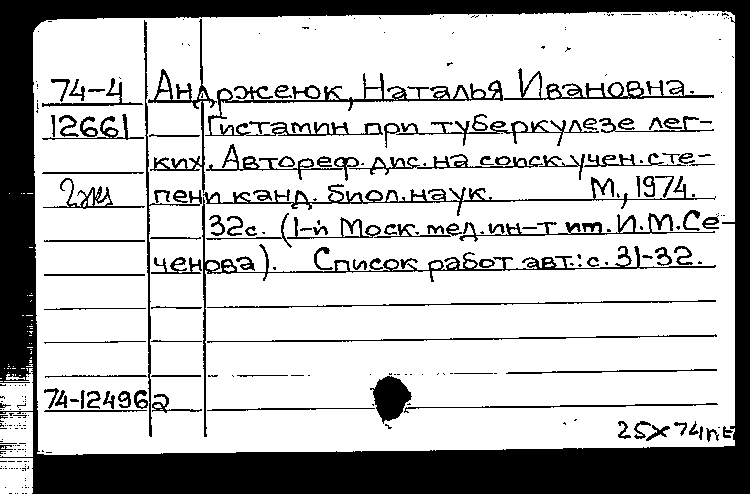 74-4 Андржеюк, Наталья Ивановна.
12661 Гистамин при туберкулезе лег-
ких. Автореф. дис. на соиск. учен. сте-
2жи пени канд. биол. наук. М., 1974.
32с. (I-й Моск. мед. ин-т им. И.М. Се-
ченова). Список работ авт.: с. 31-32.
74-124962